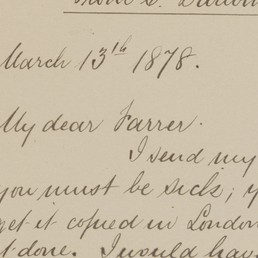 March 13th 1878.
My dear Farrer.
I send my
you must be sick; y
get it copied in London
t done. I would hav